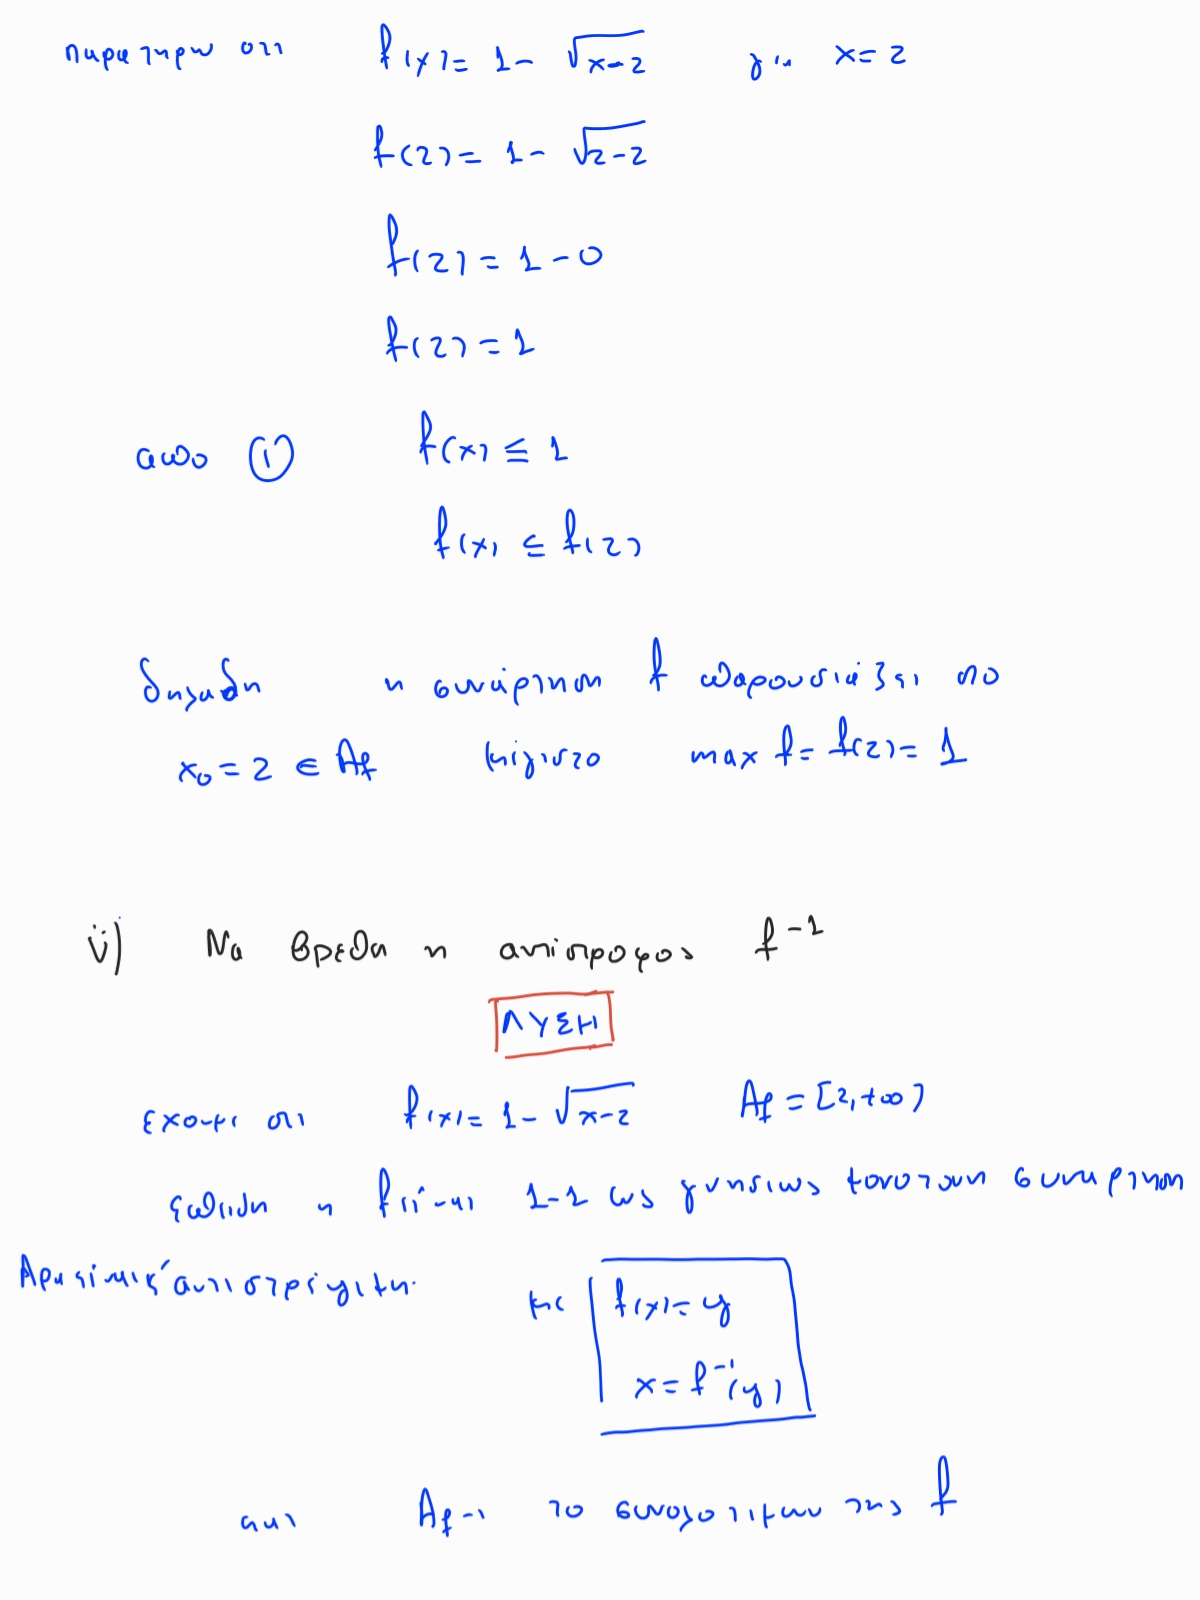 παρατηρω οτι f(x) = 1 - √x-2 για x = 2
f(2) = 1 - √2-2
f(2) = 1 - 0
f(2) = 1
απο ① f(x) ≤ 1
f(x) ≤ f(2)
δηλαδη η συνάρτηση f παρουσιάζει στο
x₀ = 2 ∈ Af μέγιστο max f = f(2) = 1
v) Να βρεθη η αντίστροφος f⁻¹
ΛΥΣΗ
εχουμε οτι f(x) = 1 - √x-2 Af = [2, +∞)
επειδη η f είναι 1-1 ως γνησιως μονοτονη συναρτηση
Αρα είναι κ' αντιστρέψιμη.
με f(x) = y
x = f⁻¹(y)
και Af⁻¹ το συνολο τιμων της f